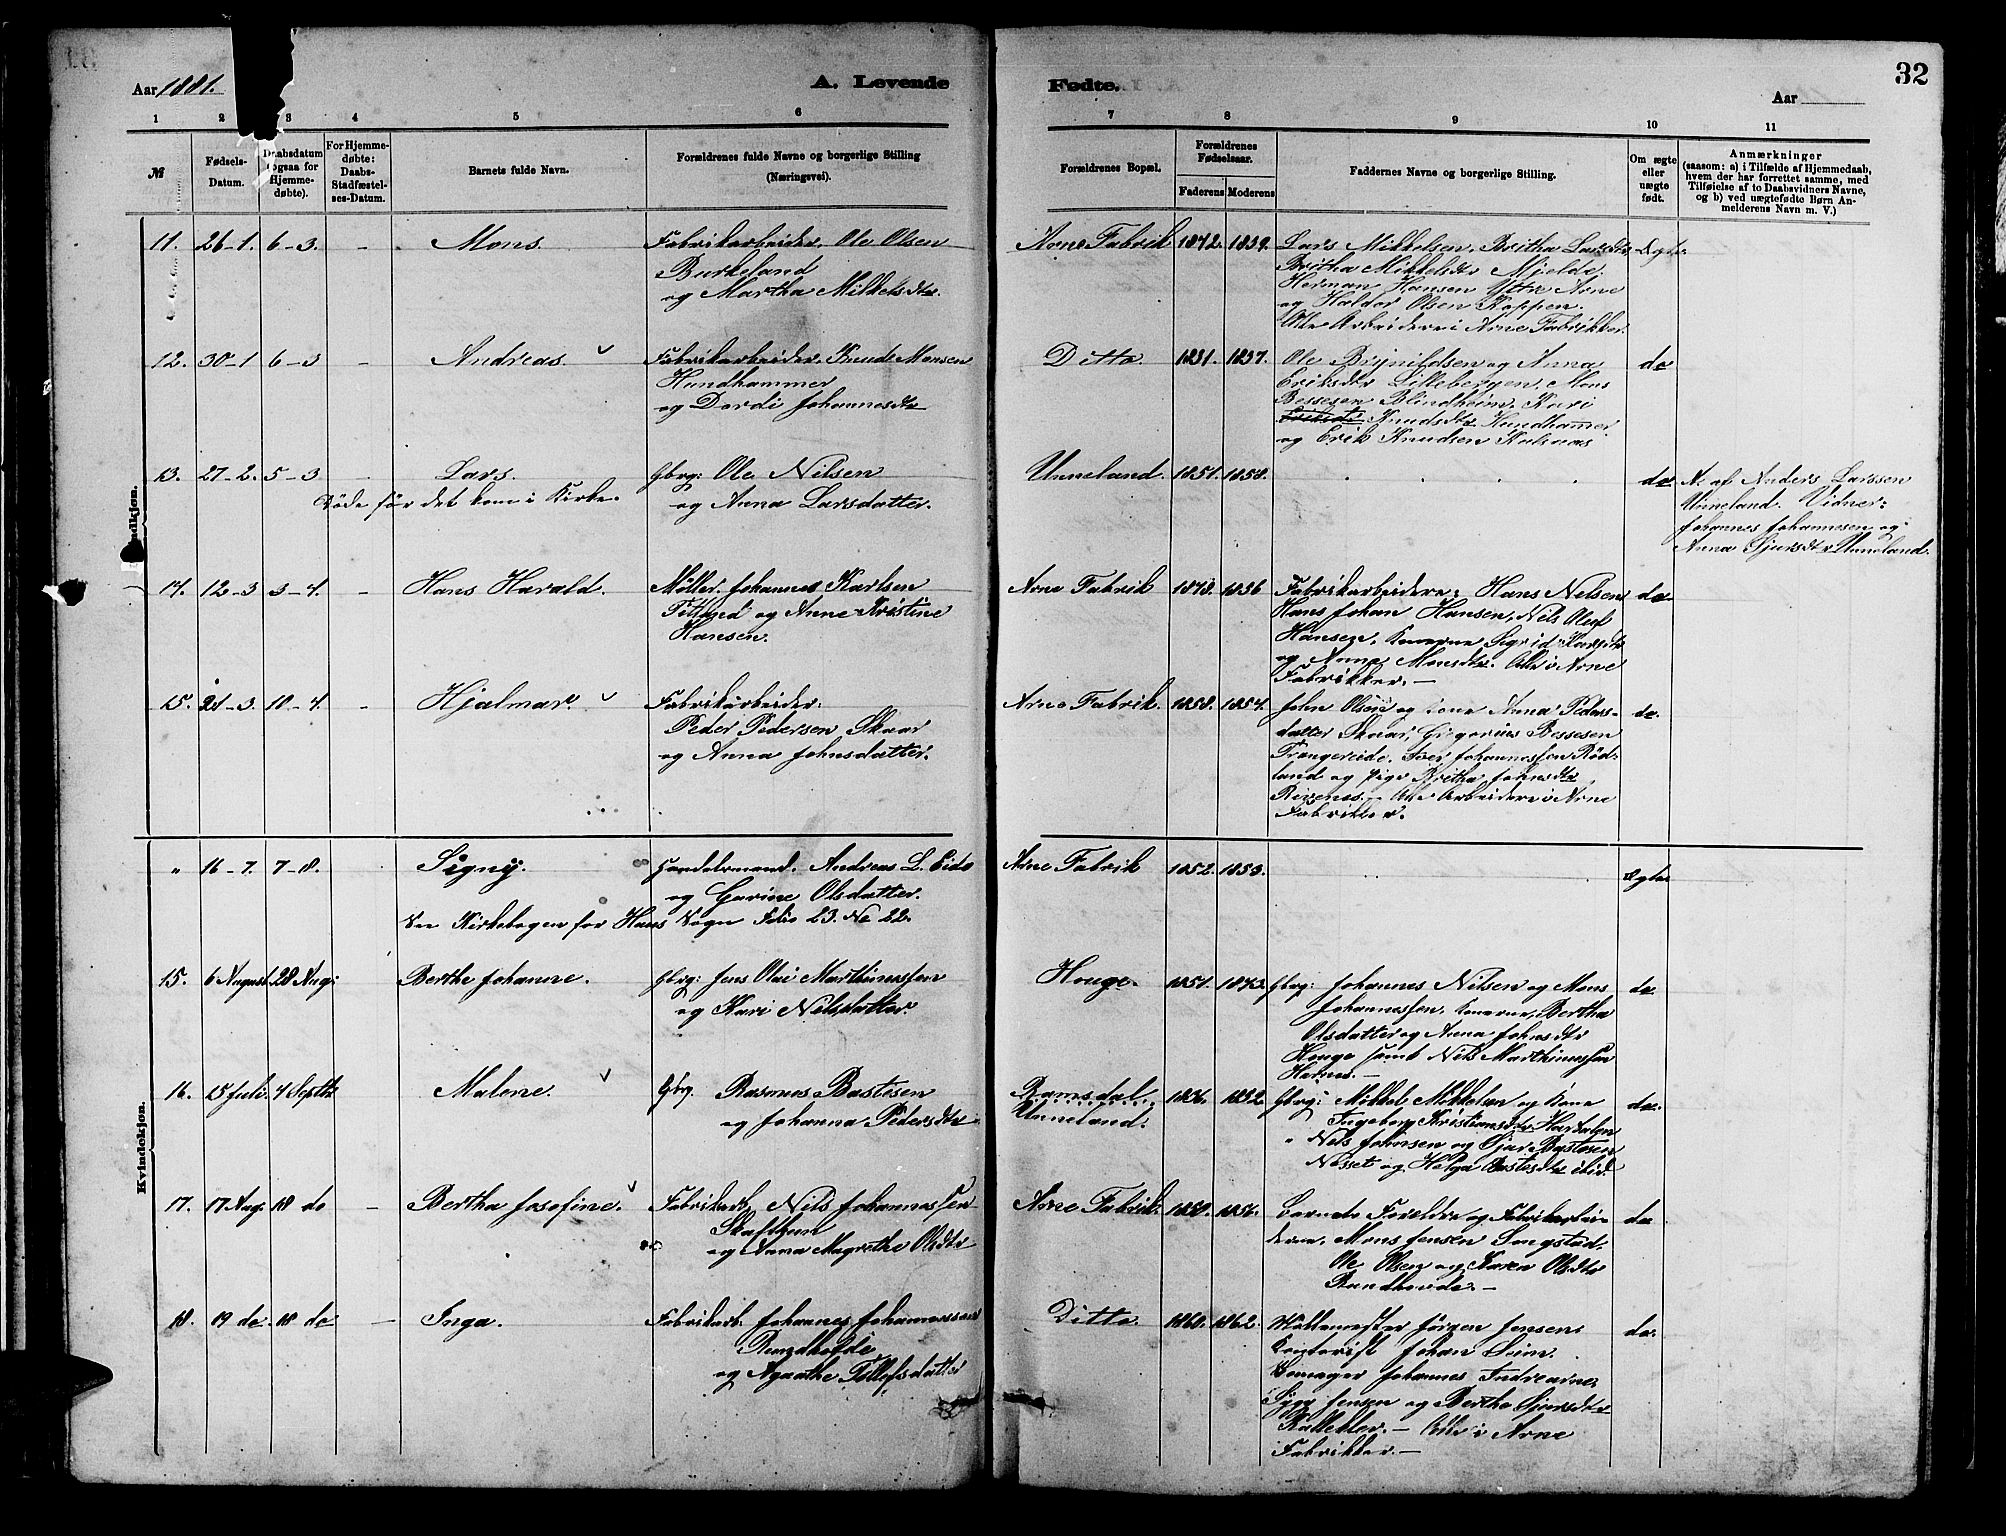 Aar 1881.
A. Levende
Fødte.
32
Aar
1 2 3 4 5 6 7 8 9 10 11
№
Fødsels-
Datum.
Daabsdatum
(ogsaa for
Hjemme-
døbte).
For Hjemme-
døbte:
Daabs-
Stadfæstel-
ses-Datum.
Barnets fulde Navn.
Forældrenes fulde Navne og borgerlige Stilling
(Næringsvei).
Forældrenes Bopæl.
Forældrenes
Fødselsaar.
Faderens Moderens
Faddernes Navne og borgerlige Stilling.
Om ægte
eller
uægte
født.
Anmærkninger
(saasom: a) i Tilfælde af Hjemmedaab,
hvem der har forrettet samme, med
Tilføielse af to Daabsvidners Navne,
og b) ved uægtefødte Børn An-
melderens Navn m. V.)
11. 26-1. 6-3. - Mons
Fabrikarbeider. Ole Olsen
Burkeland
og Martha Mikkelsdtr.
Arne Fabrik 1842. 1839.
Lars Mikkelsen, Britha Larsdtr
Britha Mikkelsdtr Mjelde,
Herman Hansen Ytre Arne
og Haldor Olsen Roppen.
Alle Arbeidere i Arne Fabrikker.
Ægte.
12. 30-1 6-3 - Andreas.
Fabrikarbeider. Knud Monsen
Hundhammer
og Dordi Johannesdtr
Ditto. 1831. 1837.
Ole Brynildsen og Anna
Eriksdtr Lillebergen, Mons
Bessesen Blindheim, Kari
Knudsdtr Hundhamer
og Erik Knudsen
do
13. 27-2. 5-3 Lars.
Døde før det kom i Kirke.
Gbrg: Ole Nilsen
og Anna Larsdatter.
Unneland. 1851. 1858.
do
N. af Anders Larssen
Unneland. Vidner:
Johannes Johannesen og
Anna Sjursdtr Unneland.
14. 12-3 3-4. - Hans Harald.
Møller. Johannes Karlsen
Tetland og Anne Kristine
Hansen.
Arne Fabrik 1856
Fabrikarbeidere: Hans Nelsen
Hans Johan Hansen, Nils Oluf
Hansen. Konerne Sigrid Larsdtr
og Anna Monsdtr. Alle i Arne
Fabrikker. -
do
15. 21-3. 10-4. - Hjalmar.
Fabrikarbeider.
Peder Pedersen Skaar
og Anna Johnsdatter.
Arne Fabrik. 1858. 1854.
John Olsen og Kone Anna Peders-
datter Skaar, Gregorius Bessesen
Trengereide, Iver Johannessen Rød-
land og Pige Britha Johnsdtr
Risnes. - Alle Arbeidere i Arne
Fabrikker.
do.
Mandkjøn.
Kvindekjøn.
" 16-7. 7-8. Signy.
Handelsmand. Andreas L. Eide
og Garine Olsdatter.
See Kirkebogen for Hans Sogn Folio 23. No 22.
Arne Fabrik 1852. 1853.
Ægte
15. 6 August. 28 Aug: Berthe Johanne.
Gbrg: Jens Olai Marthinussen
og Kari Nilsdatter.
Houge. 1851. 1843.
Gbrg: Johannes Nilsen og Mons
Johannessen, Konerne, Bertha
Olsdatter og Anna Johnsdtr
Houge samt Nils Marthinussen
do
16. 15 Juli. 4 Septbr Malene.
Gbrg. Rasmus Bastesen
og Johanna Pedersdtr
Ramsdal
Unneland. 1836. 1832.
Gbrg: Mikkel Mikkelsen og Kone
Ingeborg Kristiansdtr
" Nils Johnsen og Sjur Bastesen
Nesset og Helga Bastesdtr ibid.
do.
17. 17 Aug. 18 do - Bertha Josefine.
Fabrikarb. Nils Johannessen
Skafthun
og Anna Magrethe Olsdtr
Arne Fabrik. 1850. 1856.
Barnets Foreldre og Fabrikarbei-
derne. Mons Jensen Songstad.
Ole Olsen og Karen Olsdtr
Randhovde. -
do
18. 19 do. 18 do - Inga.
Fabrikarb. Johannes Johannessen
Randhofde
og Agathe Tollefsdatter
Ditto. 1860. 1862.
Jørgen Jensen
Kontorist Johan Seim.
Johannes Indrearne,
Jensen og Bertha Sjursdtr
- Alle i Arne
Fabrikker. -
do.